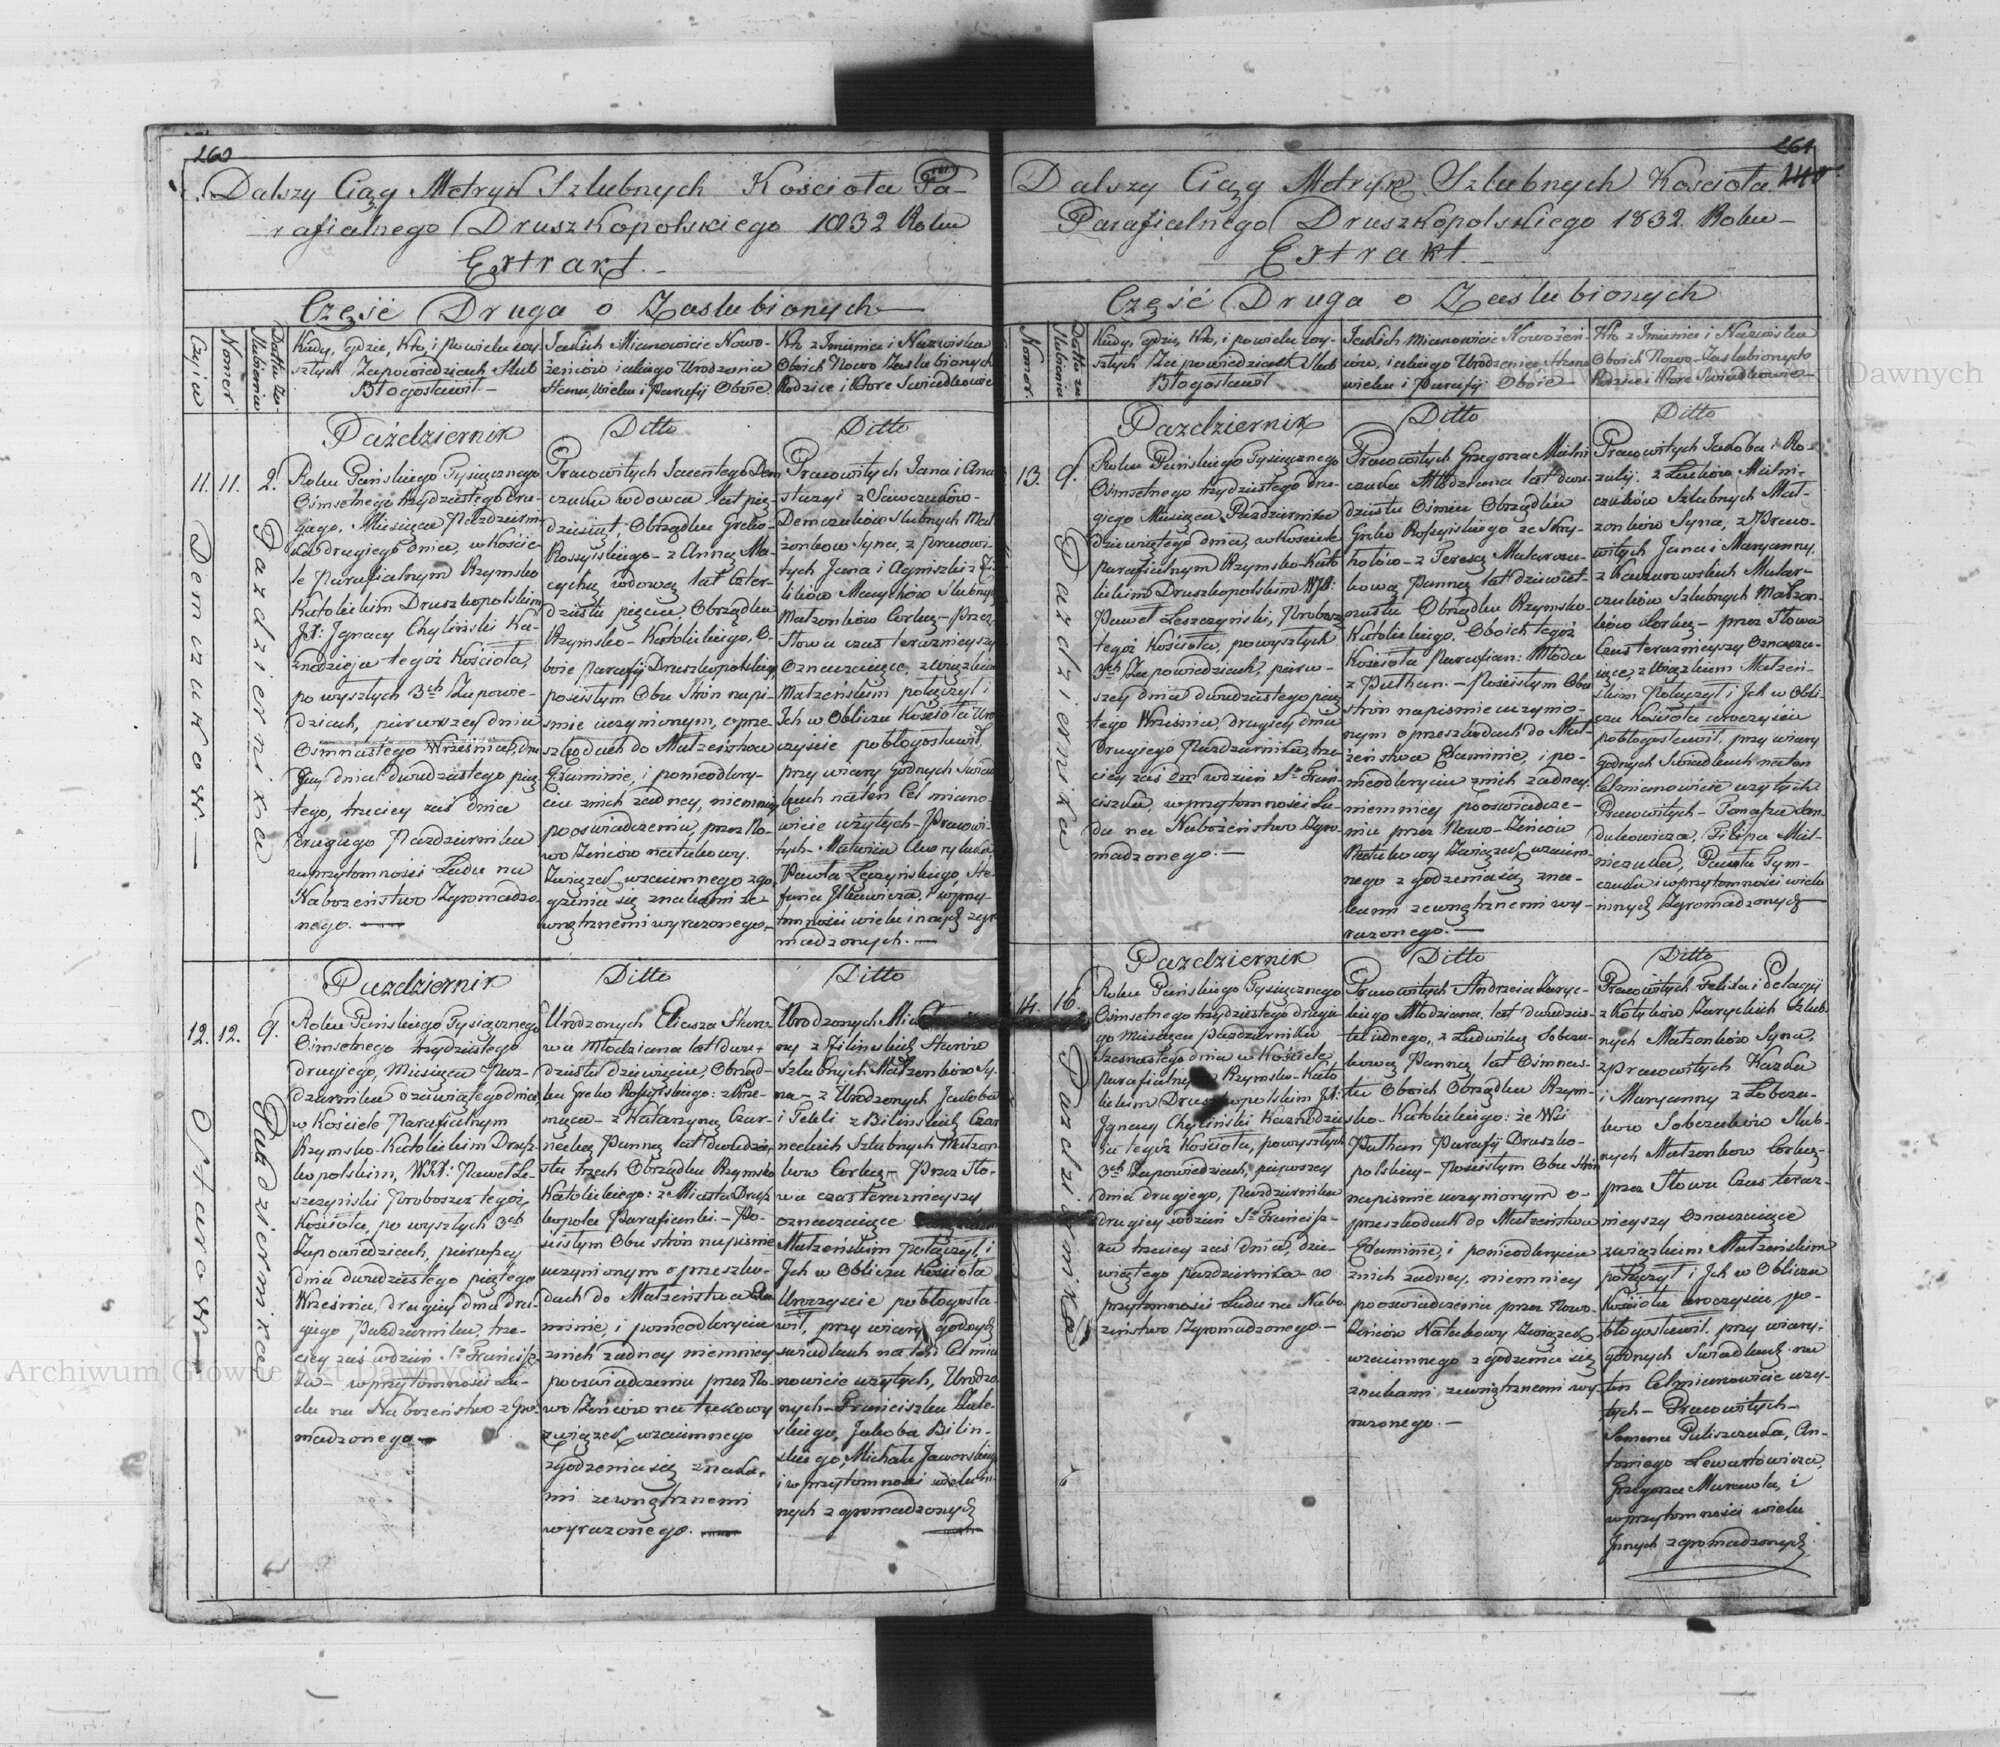 260
Dalszy Ciąg Metryk Szlubnych Kościoła Pa-
rafialnego Druszkopolskiego 1832 Roku
Extrakt.
Część Druga o Zaslubionych
Czyiw
Nomer
Datta Za-
slubienia
Kiedy, gdzie, Kto i po wielu wy-
szłych Zapowiedziach Slub
Błogosławił
Jakich Mianowicie Nowo-
żeńców iakiego Urodzenia
Stanu, Wieku i Parafij Oboie.
Kto z Imienia i Nazwiska
Obóich Nowo Zaslubionych
Rodzice i Które Swiadkowie
11.
Demczuków.
11.
2.
Pazdziernika
Październik
Roku Pańskiego Tysiącznego
Ośmsetnego trzydziestego Dru-
giego, Miesiąca Pazdziern-
ika drugiego dnia, w Koście-
le Parafialnym Rzymsko
Katolickim Druszkopolskim
JX: Jgnacy Chyliński Ka-
znodzieja tegóż Kościoła,
po wyszłych 3ch Zapowie-
dziach, pierwszey dnia
Ośmnastego Września, dru-
giey dnia dwudziestego pią-
tego, trzeciey zaś dnia
drugiego Pazdziernika
w przytomności Ludu na
Nabożeństwo Zgromadzo-
nego.
Ditto
Pracowitych Jacentego Dem
czuka wdowca lat pię-
dziesiąt, Obrządku Greko-
Rossyiskiego - z Anną Ma-
cychą wdową lat czter-
dziestu pięciu Obrządku
Rzymsko-Katolickiego, O-
boie Parafij Druszkopolskiey
poscistym Obu Strón napi-
smie uczynionym, o prze-
szkodach do Małżeństwa
Examinie, i ponieodkry-
ciu znich żadney, niemniey
pooswiadczeniu, przez No-
wo Żeńców natukowy
Związek wzaiemnego zgo-
dzenia się znakami ze
wnętrznemi wyrażonego.
Ditto
Pracowitych Jana i Ana
stazyi z Sawczuków
Demczuków Slubnych Mał-
żonków Syna, z Pracowi-
tych Jana i Agniszki z
Macychów Slubnych
Małżonków Corkę - Przez
Słowa czas teraznieyszy
Oznaczaiące, związkiem
Małżeńskim połączył i
Ich w Obliczu Kościoła Uro
czyście pobłogosławił,
przy wiary Godnych Swiad-
kach na ten Cel miano-
wicie wżytych - Pracowi-
tych - Matwiia
Pawła Łęczyńskiego, Ste-
fana, i w przy-
tomności wielu innych zgro-
madzonych.
12.
Starów
12.
9.
Pazdziernika
Pazdziernik
Roku Pańskiego Tysiącznego
Ośmsetnego trzydziestego
drugiego, Miesiąca Paz-
dziernika dziewiątego dnia
w Kościele Parafialnym
Rzymsko-Katolickim Drusz-
kopolskim, WJX: Paweł Le-
szczyński Proboszcz tegóż
Kościoła, po wyszłych 3ch
Zapowiedziach, pierwszey
dnia dwudziestego piątego
Września, drugiey dnia dru-
giego Pazdziernika, trze-
ciey zaś wdzień So Francisz-
ka - w przytomności Lu-
du na Nabożeństwo zgro-
madzonego
Ditto
Urodzonych Eliasza Star
wa Młodziana lat dwu-
dziestu dziewięciu, Obrząd-
ku Greko Rosyiskiego:
z Katarzyną Czar-
necką Panną lat dwudzie-
stu trzech Obrządku Rzymsko
Katolickiego: z Miasta Drusz-
kopola Parafianki - Po-
scistym Obu strón napismie
uczynionym o przeszko-
dach do Małżeństwa Exa-
minie, i ponieodkryciu
znich żadney niemniey
poswiadczeniu przez No-
wo Żeńców natukowy
związek wzaiemnego
zgodzenia się znaka-
mi zewnętrznemi
wyrażonego.
Ditto
Urodzonych
z Filińskich Starów
Szlubnych Małżonków Sy-
na - z Urodzonych Jakoba
i Tekli z Bilińskich Czar
neckich Szlubnych Małżon-
ków Corkę - Przez Sło-
wa czas teraznieyszy
oznaczaiące
Małżeńskim połączył, i
Ich w Obliczu Kościoła
Uroczyście pobłogosła-
wił, przy wiary godnych
swiadkach na ten Cel mia-
nowicie wżytych, Urodzo-
nych - Franciszka Zale-
skiego, Jakoba Bilin-
skiego, Michała Jaworskiego
i w przytomności wielu in-
nych zgromadzonych
261
Dalszy Ciąg Metryk Szlubnych Kościoła
Parafialnego Druszkopolskiego 1832. Roku
Extrakt.
Część Druga o Zaslubionych
Nomer.
Datta za
slubienia
Kiedy, gdzie, Kto, i po wielu wy-
szłych Zapowiedziach Slub
Błogosławił
Jakich mianowicie Nowożeń-
ców, iakiego Urodzenia Stanu
wieku i Parafij Oboie
Kto z Imienia i Nazwiska
Oboich Nowo-Zaslubionych
Rodzice i Które Swiadkowie
13.
9.
Pazdziernika
Pazdziernik
Roku Pańskiego Tysiącznego
Ośmsetnego trzydziestego dru-
giego Miesiąca Pazdziernika
dziewiątego dnia, w Kościele
parafialnym Rzymsko-Kato
lickim Druszkopolskim WJX:
Paweł Leszczyński, Proboszcz
tegóż Kościoła, powyszłych
3ch Zapowiedziach, pierw-
szey dnia dwudziestego pią-
tego Września, drugiey dnia
Drugiego Pazdziernika, trze
ciey zaś wdzień So Fran-
ciszka, w przytomności Lu-
du na Nabożeństwo Zgro-
madzonego.
Ditto
Pracowitych Grzegorza Maśni
czuka Młodziana lat dwu-
dziestu Ośmiu Obrządku
Greko Rossyiskiego ze Skry-
hołów - z Teresą Makarczu-
kową Panną lat dziewięt-
nastu Obrządku Rzymsko-
Katolickiego, Oboich tegóż
Kościoła Parafian: Młoda
z Puthan. - Poscistym Obu
strón napismie uczynio-
nym o przeszkodach do Mał-
żeństwa Examinie, i po-
nieodkryciu znich żadney
niemniey pooswiadcze-
niu przez Nowo-Żeńców
Natukowy Związek wzaiem-
nego zgodzenia się zna-
kami zewnętrznemi wy-
rażonego.
Ditto
Pracowitych Jakoba i Ro-
zalij z Łuków Maśni-
czuków Szlubnych Mał-
żonków Syna, z Praco-
witych Jana i Maryanny,
z Kaczurowskich Makar-
czuków Szlubnych Małżon-
ków Corkę - przez Słowa
Czas teraznieyszy Oznacza-
iące, związkiem Małżeń-
skim Połączył i Ich w Obli-
czu Kościoła uroczyście
pobłogosławił, przy wiary
godnych Swiadkach na ten
Cel mianowicie wżytych
Pracowitych -
Filipa Maś-
niczuka, Pawła Sym-
czuka i w przytomności wielu
innych Zgromadzonych
14.
16.
Pazdziernika
Pazdziernik
Roku Pańskiego Tysiącznego
Ośmsetnego trzydziestego drugie
go Miesiąca Pazdziernika
Szesnastego dnia w Kościele
Parafialnym Rzymsko-Kato
lickim Druszkopolskim JX:
Jgnacy Chyliński Kaznodzie-
ia tegóż Kościoła, powyszłych
3ch Zapowiedziach, pierwszey
dnia drugiego, Pazdziernika
drugiey wdzień So Francisz-
ka trzeciey zaś dnia, dzie-
wiątego pazdziernika - w
przytomności Ludu na Nabo
żeństwo Zgromadzonego. -
Ditto
Pracowitych Andrzeia Zaryc-
kiego Młodziana lat dwudzies-
tu iednego, z Ludwiką Sobczu-
kową Panną lat Ośmnas-
tu Oboich Obrządku Rzym-
sko-Katolickiego: ze Wsi
Puthan Parafij Druszko-
polskiey - Poscistym Obu Strón
napismie uczynionym o-
przeszkodach do Małżeństwa
Examinie, i ponieodkryciu
znich żadney, niemniey
pooswiadczeniu przez Nowo-
Żeńców Natukowy Związek
wzaiemnego zgodzenia się
znakami zewnętrznemi wy-
rażonego. -
Ditto
Pracowitych Felixa i Pelagij
z Kotyków Zaryckich Szlub-
nych Małżonków Syna,
z Pracowitych
i Maryanny z
Sobczuków Slub-
nych Małżonków Corkę -
przez Słowa Czas teraz-
nieyszy Oznaczaiące
związkiem Małżeńskim
połączył i Ich w Obliczu
Kościoła uroczyście po-
błogosławił, przy wiary-
godnych Swiadkach na
ten Cel mianowicie wży-
tych - Pracowitych -
Semena An-
toniego Lewartowicza,
Grzegorza i
w przytomności wielu
Innych zgromadzonych
Archiwum Główne Akt Dawnych
Archiwum Główne Akt Dawnych